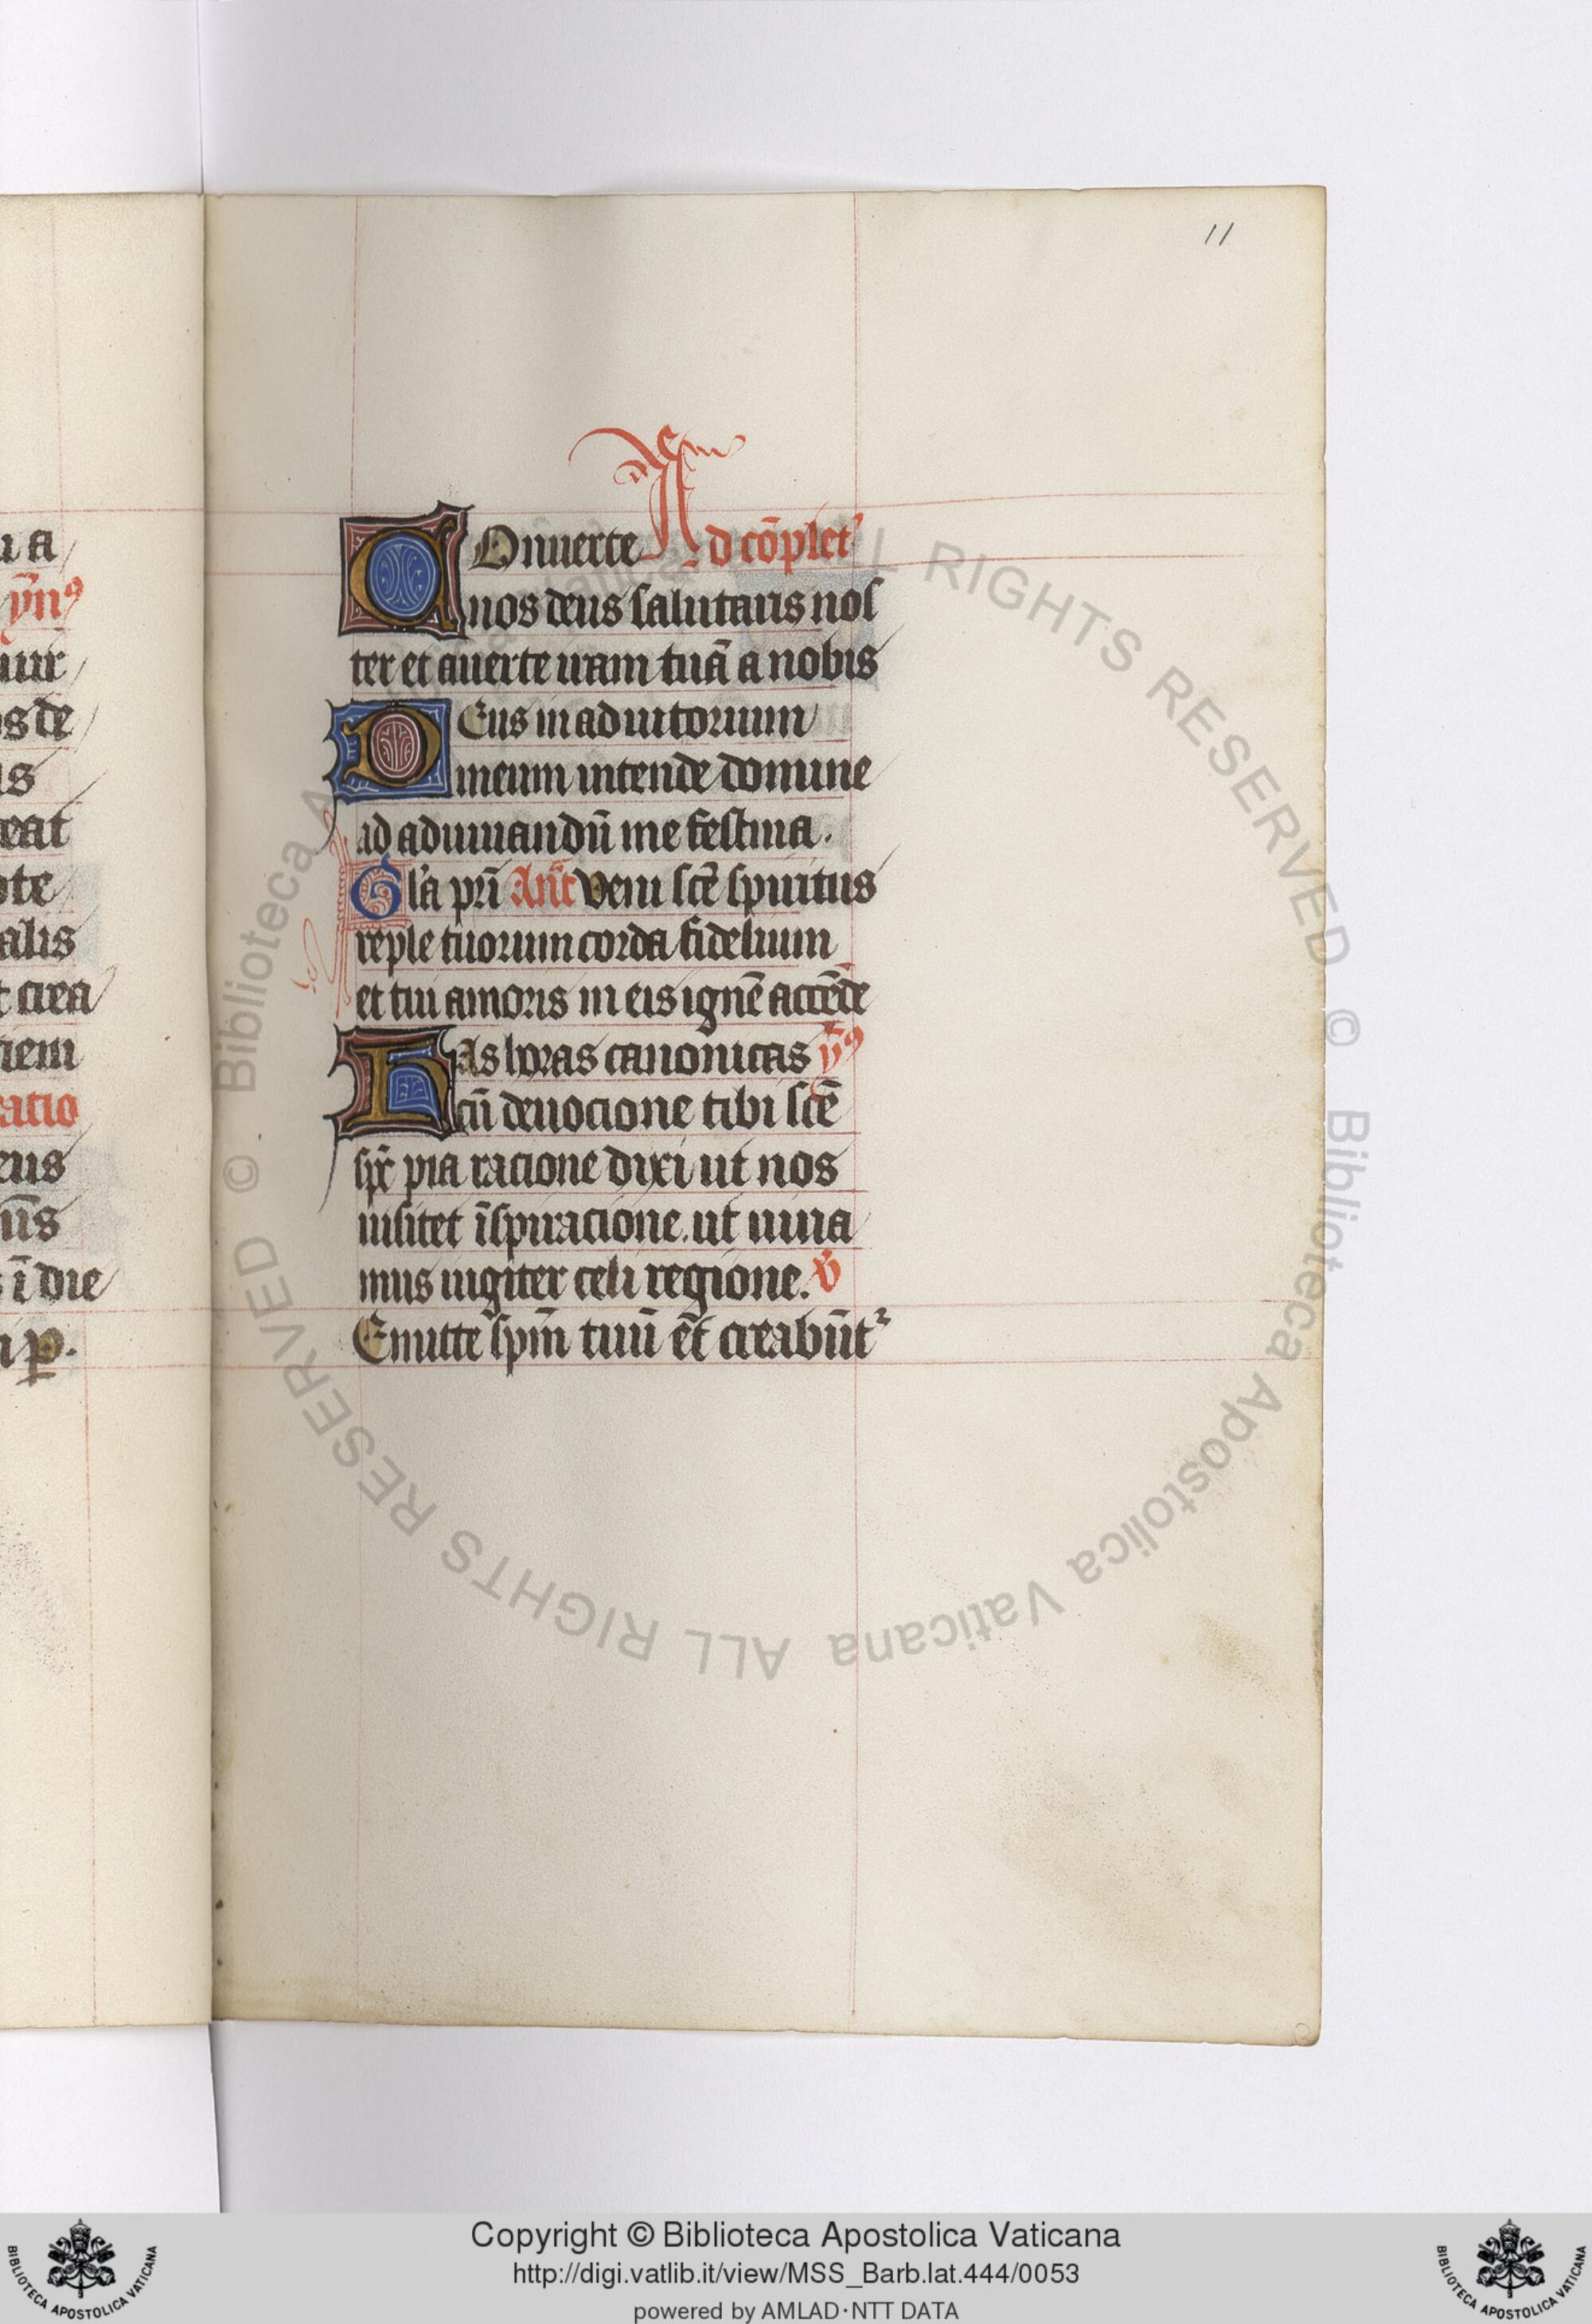 11
COnuerte Ad cōplet'
nos deus salutaris nos
ter et auerte iram tuā a nobis
DEus in adiutorium
meum intende domine
ad adiuuandū me festina.
Gl'a pr̄i Ant̄ Veni sc̄e spiritus
reple tuorum corda fidelium
et tui amoris in eis ignē accēde
HAs horas canonicas ỹꝰ
cū deuocione tibi sc̄e
spc̄ pia racione dixi ut nos
uisitet īspiracione. ut uiua
mus iugiter celi regione. V̄
Emitte sp̄m tuū et̄ creabūt᷑
u a
ỹnꝰ
os de
us
eat
ote
alis
t crea
ciem
ratio
eus
ūs
s ī die
n ꝑ.
© Biblioteca Apostolica Vaticana ALL RIGHTS RESERVED © Biblioteca Apostolica Vaticana ALL RIGHTS RESERVED
BIBLIOTECA APOSTOLICA VATICANA
Copyright © Biblioteca Apostolica Vaticana
http://digi.vatlib.it/view/MSS_Barb.lat.444/0053
powered by AMLAD·NTT DATA
BIBLIOTECA APOSTOLICA VATICANA